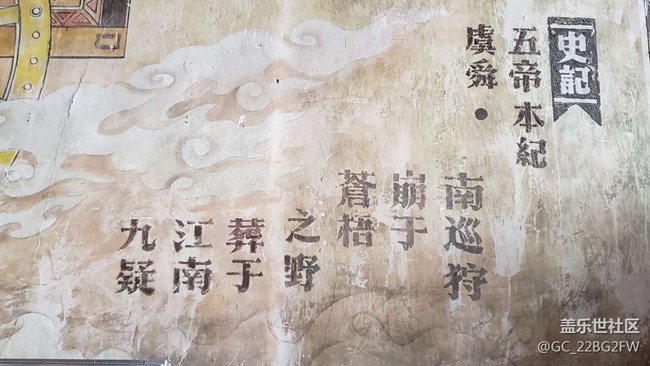 史記
五帝本紀
虞舜·
南巡狩
崩于
蒼梧
之野
葬于
江南
九疑
盖乐世社区
@GC_22BG2FW